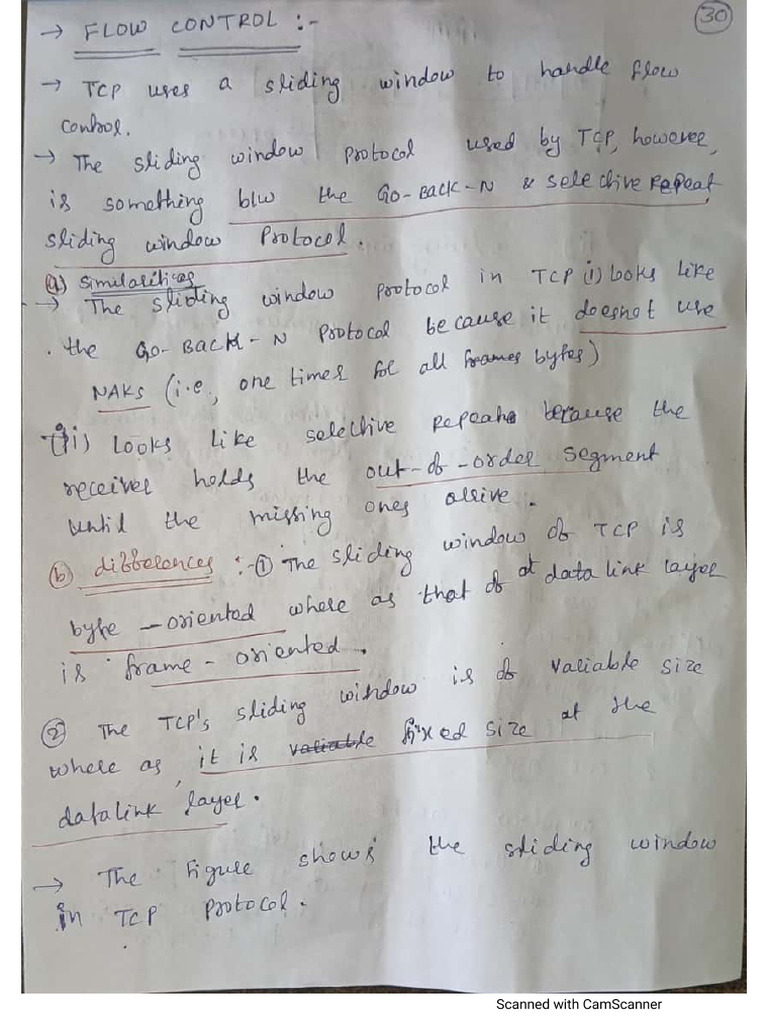 30
→ FLOW CONTROL :-
→ TCP uses a sliding window to handle flow
control.
→ The sliding window protocol used by TCP, however,
is something b/w the GO-BACK-N & selective Repeat
sliding window Protocol.
(a) Similarities
→ The sliding window protocol in TCP (i) looks like
the GO-BACK-N Protocol because it doesnot use
NAKS (i.e., one timer for all frames bytes)
(ii) looks like selective Repeat because the
receiver holds the out-of-order segment
until the missing ones arrive.
(b) differences :- ① The sliding window of TCP is
byte-oriented where as that of at data link layer
is frame-oriented.
② The TCP's sliding window is of variable size
where as, it is variable fixed size at the
datalink layer.
→ The Figure shows the sliding window
in TCP Protocol.
Scanned with CamScanner